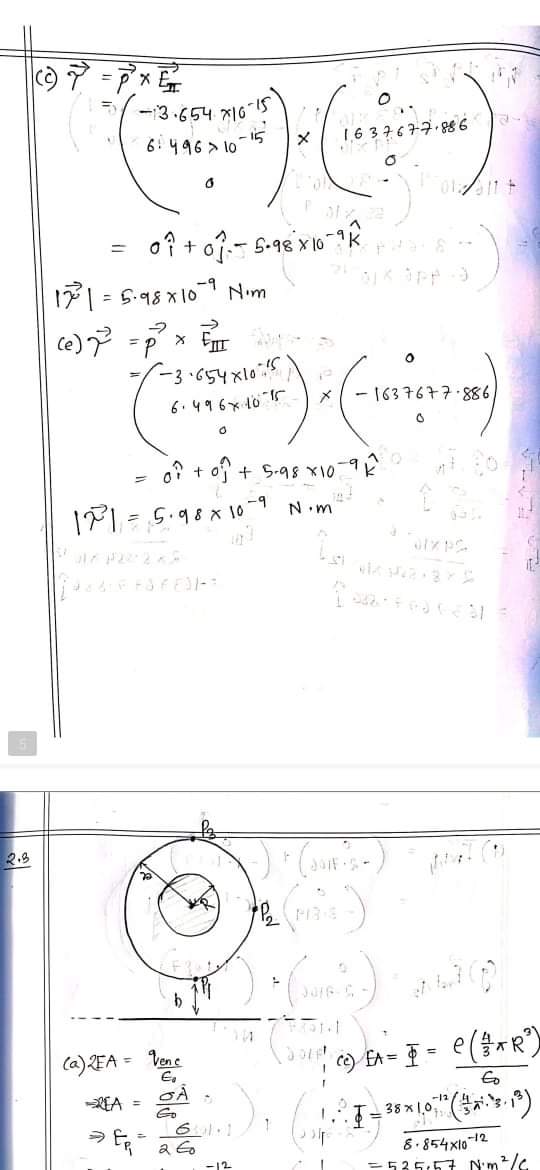 (c) τ⃗ = p⃗ × E⃗_II
= (-3.654 × 10^-15, 6.496 × 10^-15, 0) × (0, 1637677.886, 0)
= 0î + 0ĵ - 5.98 × 10^-9 k̂
|τ⃗| = 5.98 × 10^-9 N·m
(e) τ⃗ = p⃗ × E⃗_III
= (-3.654 × 10^-15, 6.496 × 10^-15, 0) × (0, -1637677.886, 0)
= 0î + 0ĵ + 5.98 × 10^-9 k̂
|τ⃗| = 5.98 × 10^-9 N·m
5
2.3
P3
R
P2
P1
b
(a) 2EA = q_enc / ε₀
⇒ 2EA = σA / ε₀
⇒ E_P1 = σ / 2ε₀
-12
(c) EA = Φ = ρ(4/3 πR³) / ε₀
∴ Φ = 38 × 10^-12 (4/3 π · 3.1³) / 8.854 × 10^-12
= 535.57 N·m²/C